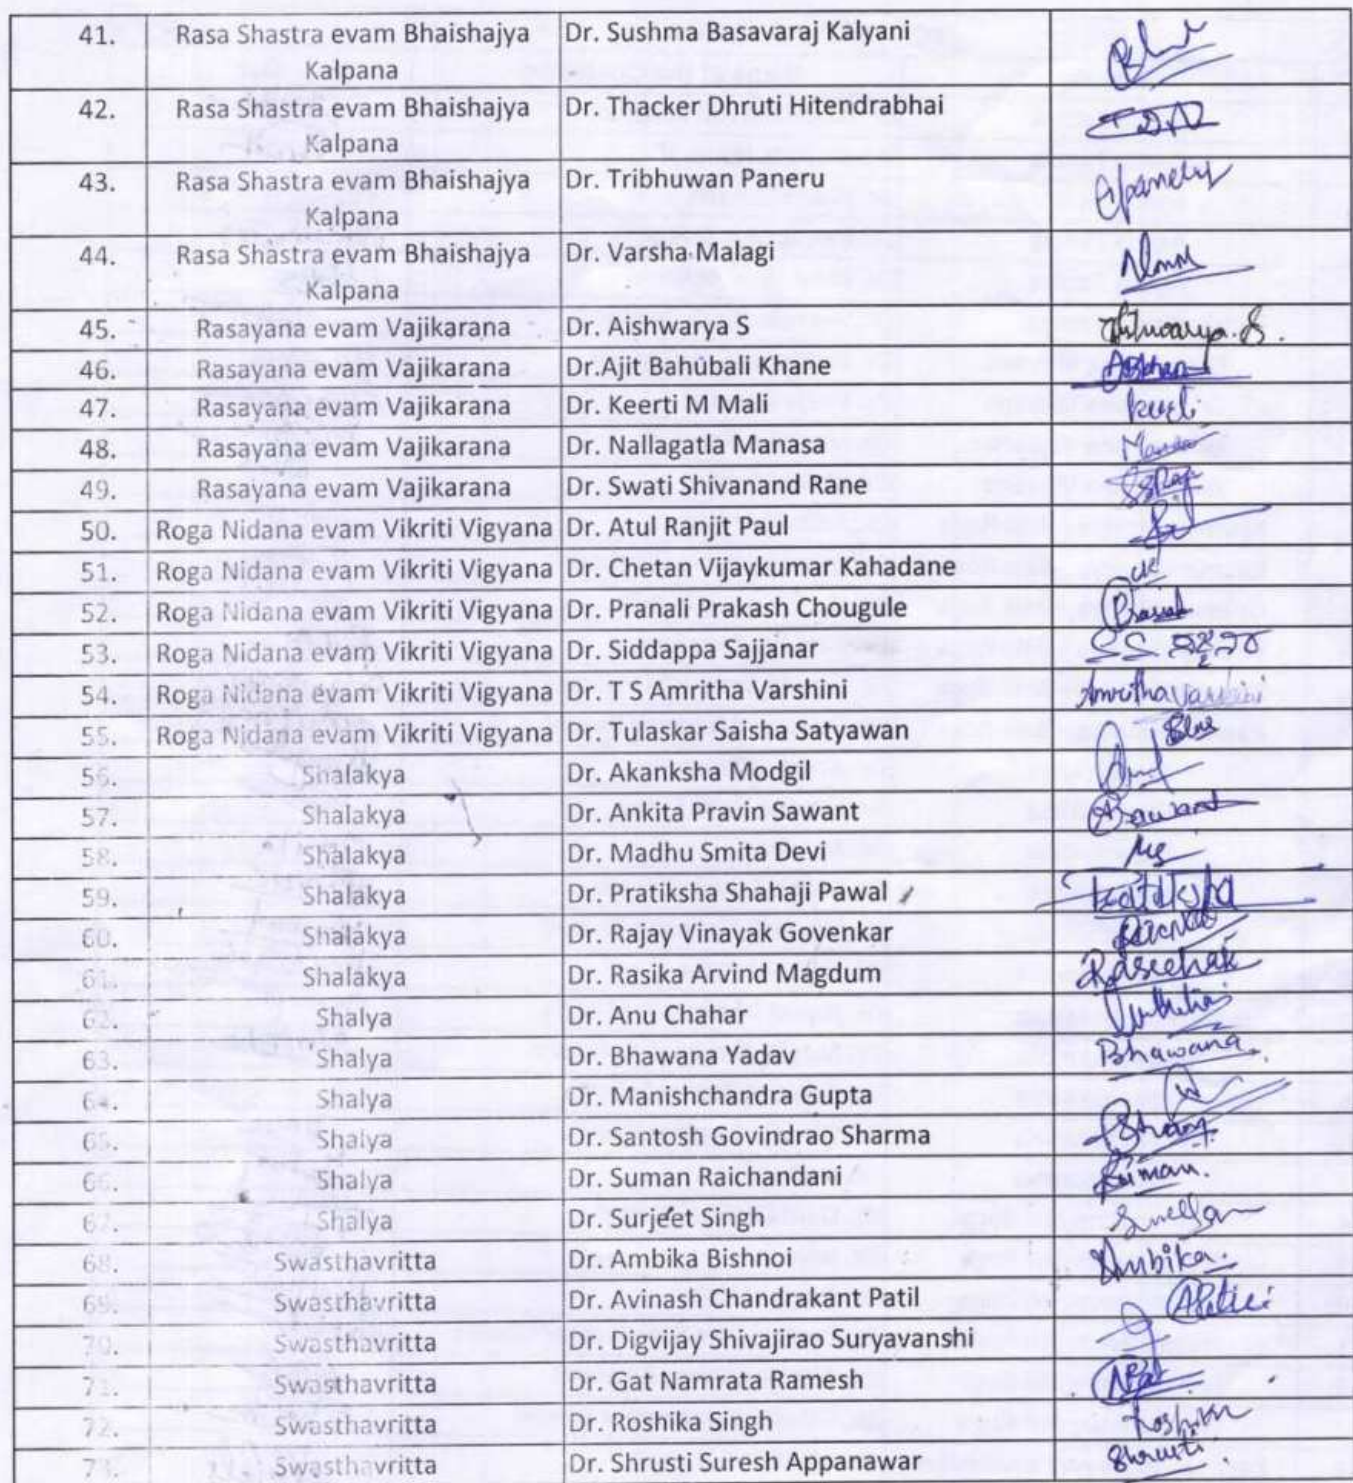 41. Rasa Shastra evam Bhaishajya Dr. Sushma Basavaraj Kalyani
Kalpana
42. Rasa Shastra evam Bhaishajya Dr. Thacker Dhruti Hitendrabhai
Kalpana
43. Rasa Shastra evam Bhaishajya Dr. Tribhuwan Paneru
Kalpana
44. Rasa Shastra evam Bhaishajya Dr. Varsha Malagi
Kalpana
45. Rasayana evam Vajikarana Dr. Aishwarya S
46. Rasayana evam Vajikarana Dr.Ajit Bahubali Khane
47. Rasayana evam Vajikarana Dr. Keerti M Mali
48. Rasayana evam Vajikarana Dr. Nallagatla Manasa
49. Rasayana evam Vajikarana Dr. Swati Shivanand Rane
50. Roga Nidana evam Vikriti Vigyana Dr. Atul Ranjit Paul
51. Roga Nidana evam Vikriti Vigyana Dr. Chetan Vijaykumar Kahadane
52. Roga Nidana evam Vikriti Vigyana Dr. Pranali Prakash Chougule
53. Roga Nidana evam Vikriti Vigyana Dr. Siddappa Sajjanar
54. Roga Nidana evam Vikriti Vigyana Dr. T S Amritha Varshini Amritha Varshini
55. Roga Nidana evam Vikriti Vigyana Dr. Tulaskar Saisha Satyawan
56. Shalakya Dr. Akanksha Modgil
57. Shalakya Dr. Ankita Pravin Sawant
58. Shalakya Dr. Madhu Smita Devi
59. Shalakya Dr. Pratiksha Shahaji Pawal
60. Shalakya Dr. Rajay Vinayak Govenkar
61. Shalakya Dr. Rasika Arvind Magdum
62. Shalya Dr. Anu Chahar
63. Shalya Dr. Bhawana Yadav Bhawana
64. Shalya Dr. Manishchandra Gupta
65. Shalya Dr. Santosh Govindrao Sharma
66. Shalya Dr. Suman Raichandani Suman
67. Shalya Dr. Surjeet Singh
68. Swasthavritta Dr. Ambika Bishnoi Ambika
69. Swasthavritta Dr. Avinash Chandrakant Patil
70. Swasthavritta Dr. Digvijay Shivajirao Suryavanshi
71. Swasthavritta Dr. Gat Namrata Ramesh
72. Swasthavritta Dr. Roshika Singh Roshika
73. Swasthavritta Dr. Shrusti Suresh Appanawar Shrusti